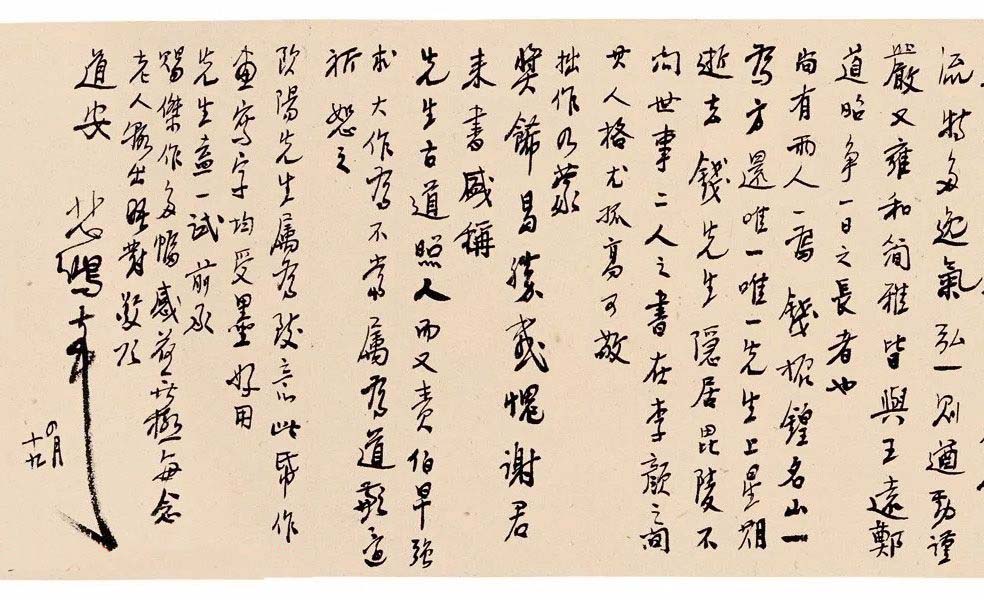 流特多逸氣弘一則遒勁謹
嚴又雍和簡雅皆與王遠鄭
道昭争一日之長者也
尚有兩人一為錢振鍠名山一
為方還唯一唯一先生上星期
逝去錢先生隱居毘陵不
問世事二人之書在李顏之間
其人格尤孤高可敬
拙作乃蒙
獎飾曷勝感愧謝君
来書盛稱
先生古道照人而又責伯早强
求大作為不當屬為道歉意
祈恕之
歐陽先生屬為致意此帋作
畫寫字均受墨好用
先生盍一試前承
賜傑作多幅感荷無極每念
老人輒出晤對敬頌
道安
悲鴻頓首
四月
十九